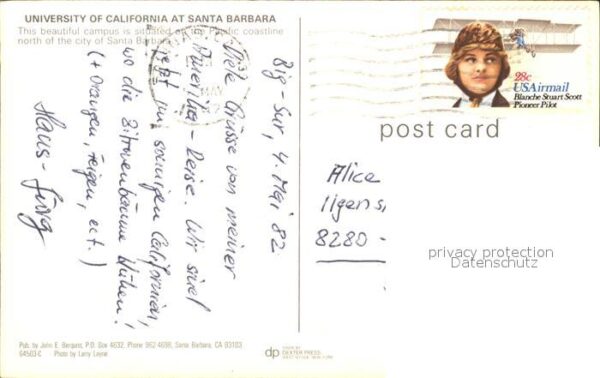 UNIVERSITY OF CALIFORNIA AT SANTA BARBARA
This beautiful campus is situated on the Pacific coastline
north of the city of Santa Barbara.
Big-Sur, 4. Mai 82
Viele Grüsse von meiner
Amerika-Reise. Wir sind
jetzt im sonnigen Californien,
wo die Zitronenbäume blühen!
(+ Orangen, Feigen, ect.)
Hans-Jürg
28c
USAirmail
Blanche Stuart Scott
Pioneer Pilot
post card
Alice
Ilgens,
8280 -
privacy protection
Datenschutz
Pub. by John E. Bergquist, P.O. Box 4632, Phone 962-4698, Santa Barbara, CA 93103
64503-C Photo by Larry Layne
dp
DEXTER PRESS
WEST NYACK, NEW YORK